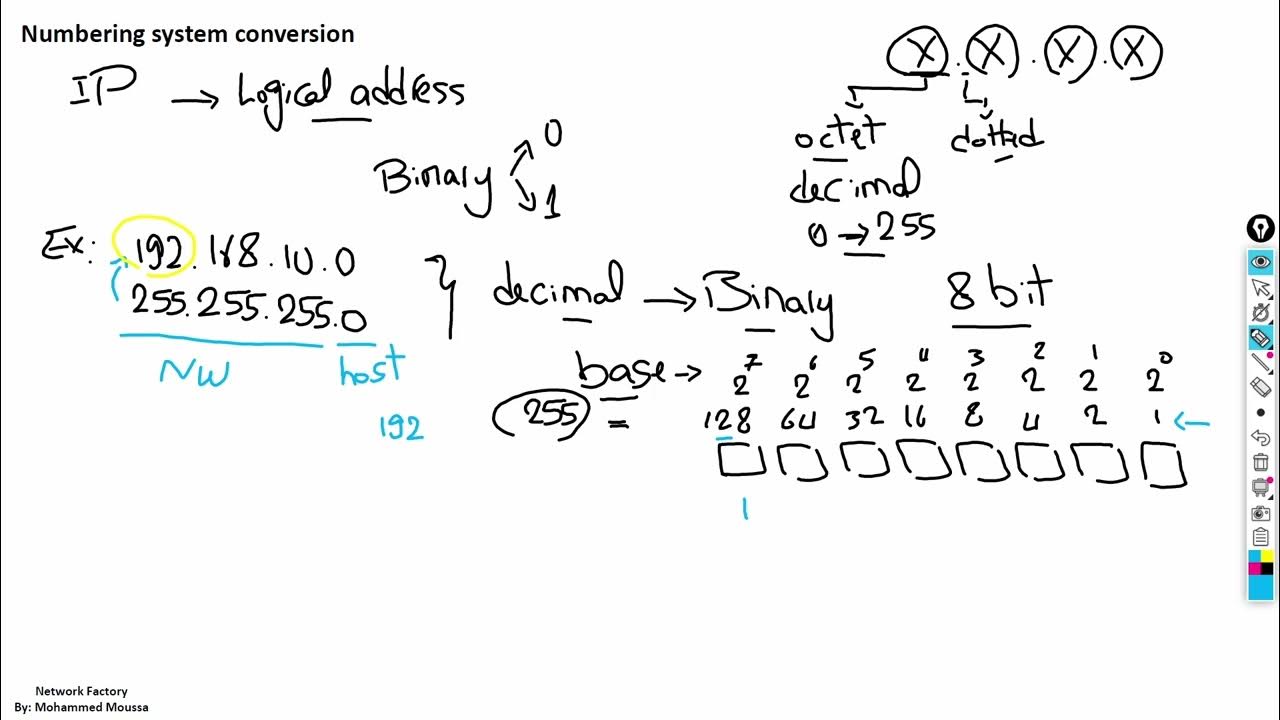 Numbering system conversion
X . X . X . X
IP → Logical address
octet dotted
decimal
0 → 255
Binary 0
1
Ex: 192.168.10.0
255.255.255.0
NW host
decimal → Binary 8 bit
base → 2^7 2^6 2^5 2^4 2^3 2^2 2^1 2^0
255 = 128 64 32 16 8 4 2 1 ←
192
1
Network Factory
By: Mohammed Moussa